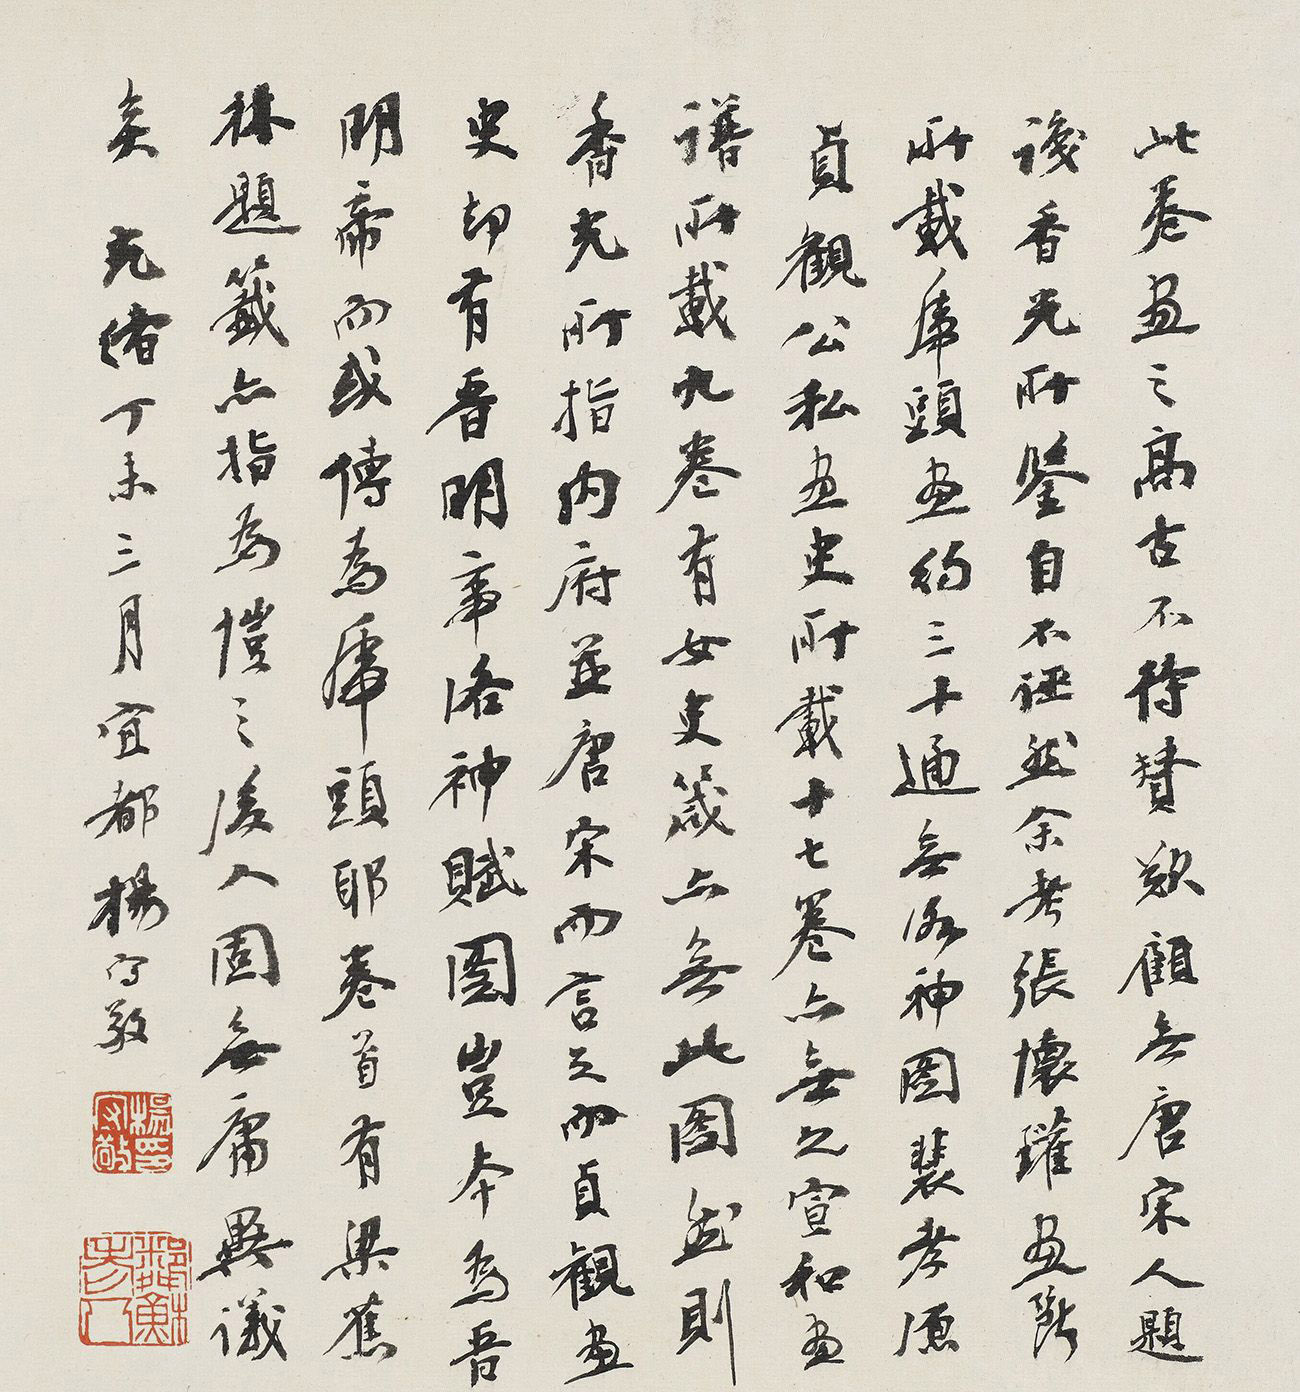 此卷画之高古不待贊歎顧無唐宋人題
識香光所鑒自不誣然余考張懷瓘画斷
所載虎頭画約三十通無洛神圖裴孝源
貞觀公私画史所載十七卷亦無之宣和画
譜所載九卷有女史箴亦無此圖然則
香光所指内府並唐宋而言之而貞觀画
史却有晋明帝洛神賦圖豈本為晋
明帝而或傳為虎頭耶卷首有梁蕉
林題籤亦指為愷之後人固無庸異議
矣 光緒丁未三月宜都楊守敬
楊守敬印
鄰蘇老人